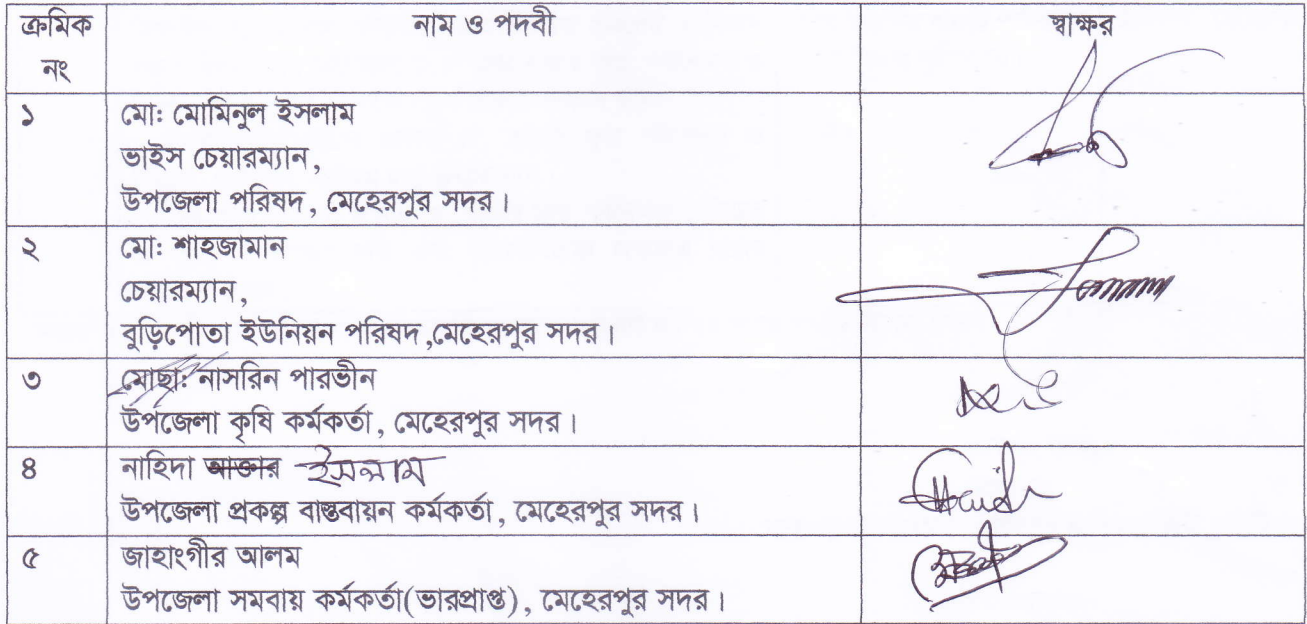 ক্রমিক নং নাম ও পদবী স্বাক্ষর
১ মো: মোমিনুল ইসলাম
ভাইস চেয়ারম্যান,
উপজেলা পরিষদ, মেহেরপুর সদর।
২ মো: শাহজামান
চেয়ারম্যান,
বুড়িপোতা ইউনিয়ন পরিষদ,মেহেরপুর সদর।
৩ মোছা: নাসরিন পারভীন
উপজেলা কৃষি কর্মকর্তা, মেহেরপুর সদর।
৪ নাহিদা আক্তার ইসলাম
উপজেলা প্রকল্প বাস্তবায়ন কর্মকর্তা, মেহেরপুর সদর।
৫ জাহাংগীর আলম
উপজেলা সমবায় কর্মকর্তা(ভারপ্রাপ্ত), মেহেরপুর সদর।